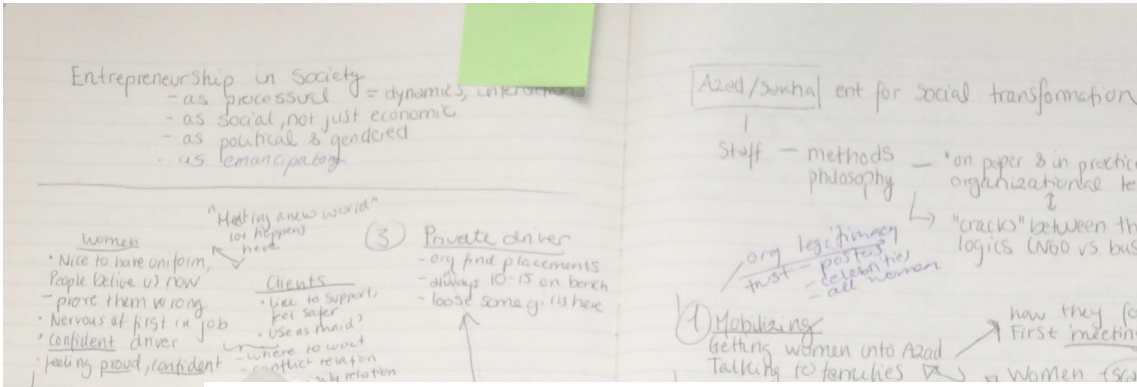 Entrepreneurship in Society
- as processual = dynamics, interactions
- as social, not just economic
- as political & gendered
- as emancipatory
"Meeting a new world"
lot happens
here
Women
• Nice to have uniform,
People belive us now
- prove them wrong
• Nervous at first in job
• confident driver
• feeling proud, confident
Clients
• Like to support,
feel safer
• Use as maid?
- where to wait
- conflict relation
relation
③ Private driver
- org find placements
- always 10-15 on bench
- loose some girls here
Azad/Sakha ent for social transformation
Staff - methods
philosophy
- "on paper & in practic
organizational te
"cracks" between th
logics (NGO vs bus
org legitimacy
trust - posters
- celebrities
- all women
① Mobilizing
Getting women into Azad
Talking to families
how they fo
First meetin
Women